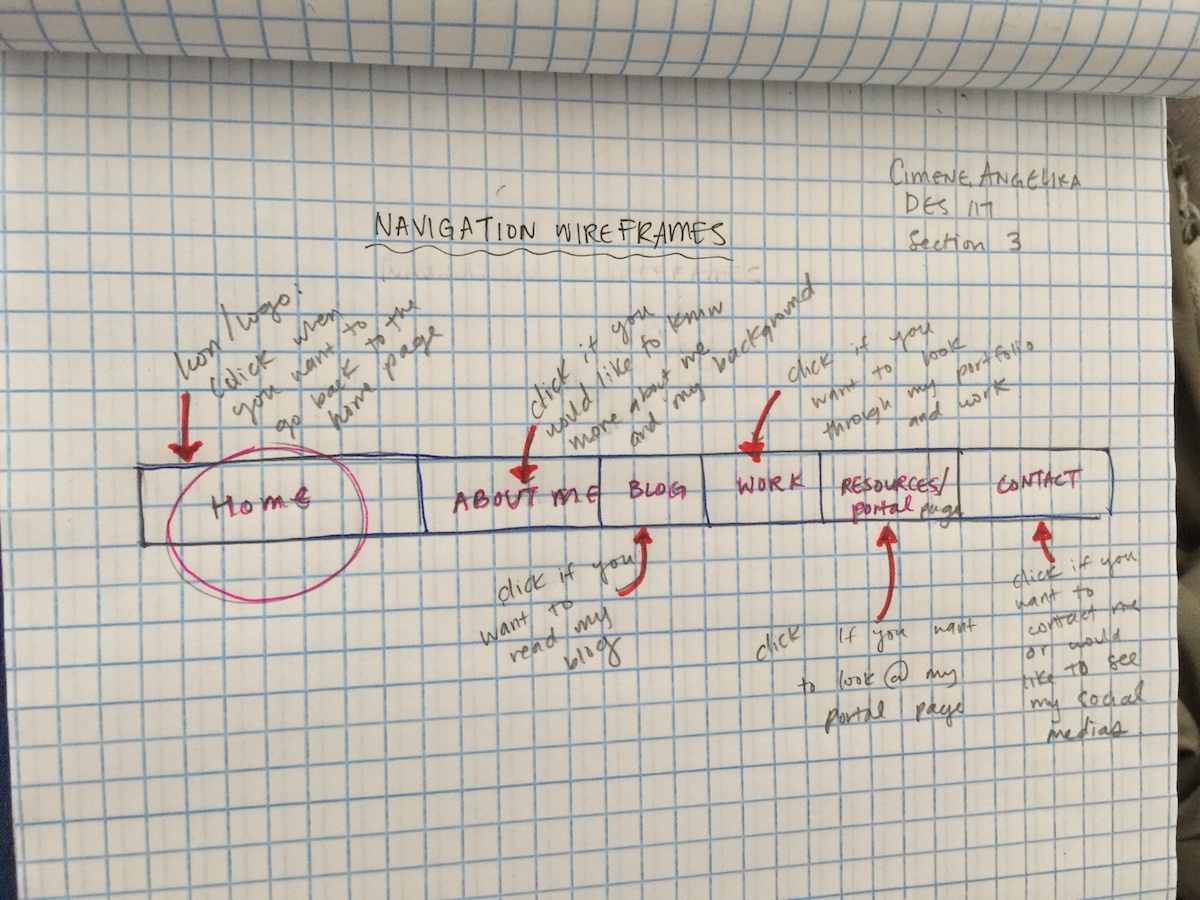 CIMENE, ANGELIKA
DES 117
Section 3
NAVIGATION WIREFRAMES
Icon/logo:
Click when
you want to
go back to the
home page
click if you
would like to know
more about me
and my background
click if you
want to look
through my portfolio
and work
HOME
ABOUT ME
BLOG
WORK
RESOURCES/
portal page
CONTACT
click if you
want to
read my
blog
click if you want
to look @ my
portal page
click if you
want to
contact me
or would
like to see
my social
medias